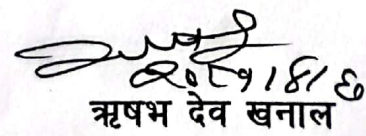 २०८१/४/६
ऋषभ देव खनाल